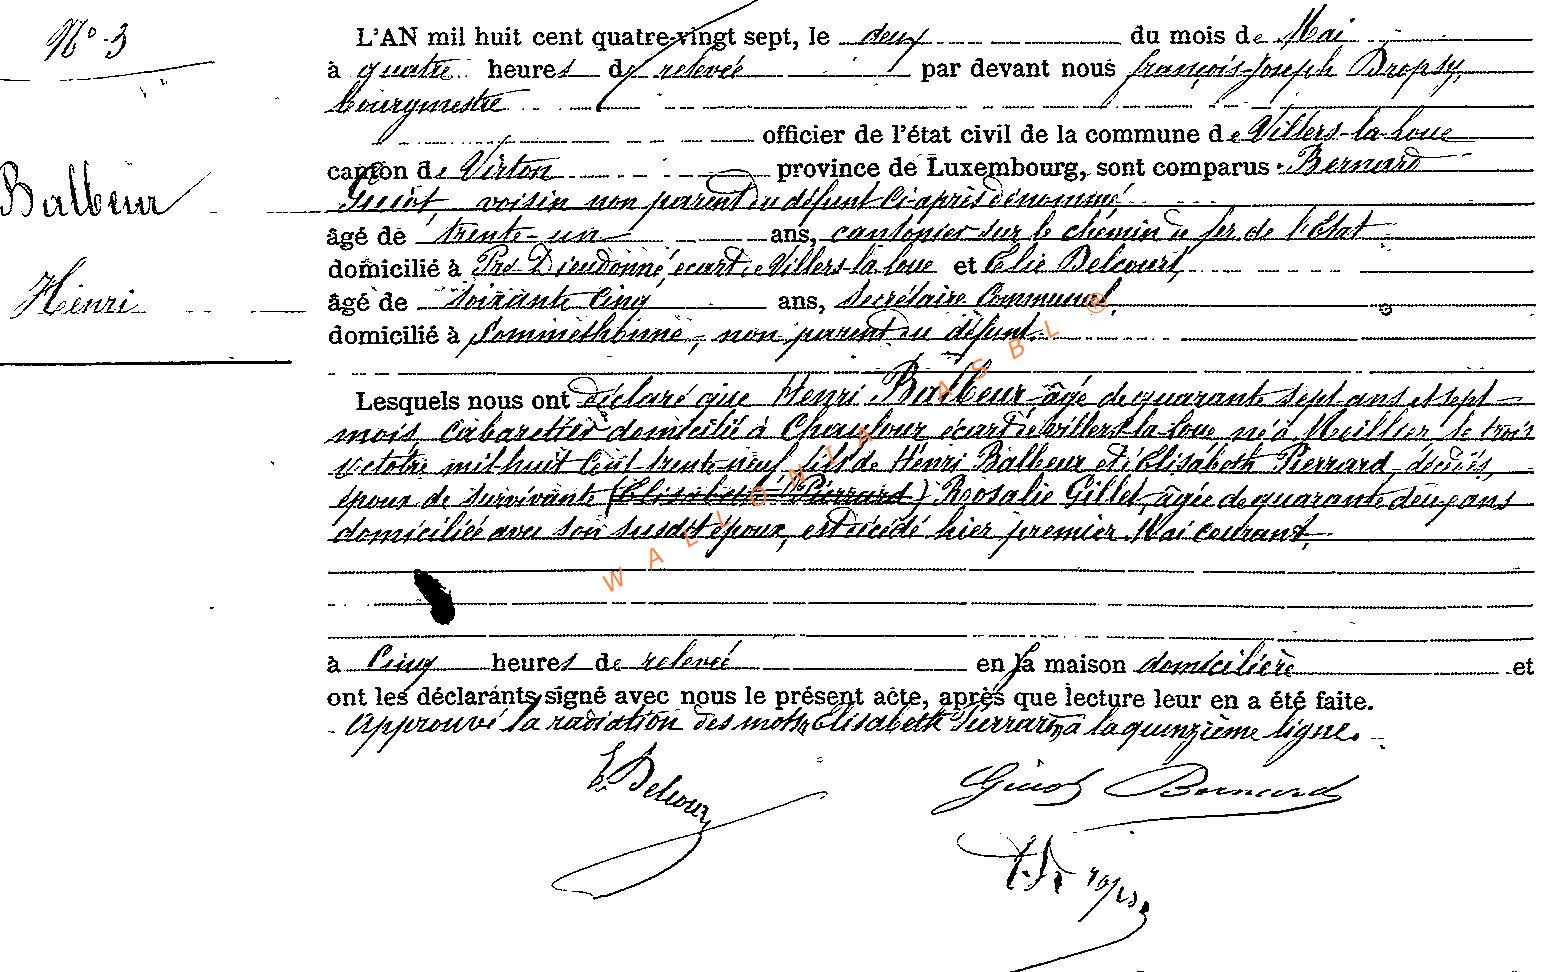 N° 3
Balbeur
Henri
L'AN mil huit cent quatre-vingt sept, le deux du mois de Mai
à quatre heures de relevée par devant nous françois-Joseph Dropsy,
bourgmestre
officier de l'état civil de la commune de Villers-la-loue
canton de Virton province de Luxembourg, sont comparus Bernard
Guiot, voisin non parent du défunt ci-après dénommé
âgé de trente-un ans, cantonier sur le chemin de fer de l'Etat
domicilié à Pré Dieudonné, écart de Villers-la-loue et Elie Delcourt,
âgé de soixante cinq ans, Secrétaire Communal,
domicilié à Sommethonne, non parent du défunt.
Lesquels nous ont déclaré que Henri Balbeur âgé de quarante sept ans et sept
mois, Cabaretier domicilié à écart de Villers-la-loue né à Meillier le trois
octobre mil huit cent trente-neuf, fils de Henri Balbeur et d'Elisabeth Pierrard, décédés,
époux de survivante (Elisabeth Pierrard) Rosalie Gillet, âgée de quarante deux ans
domiciliée avec son susdit époux, est décédé hier premier Mai courant,
à Cinq heures de relevée en sa maison domicilière et
ont les déclarants signé avec nous le présent acte, après que lecture leur en a été faite.
Approuvé la radiation des mots, Elisabeth Pierrard, à la quinzième ligne.
E. Delcourt
Guiot Bernard
WALLONIA ASBL ®